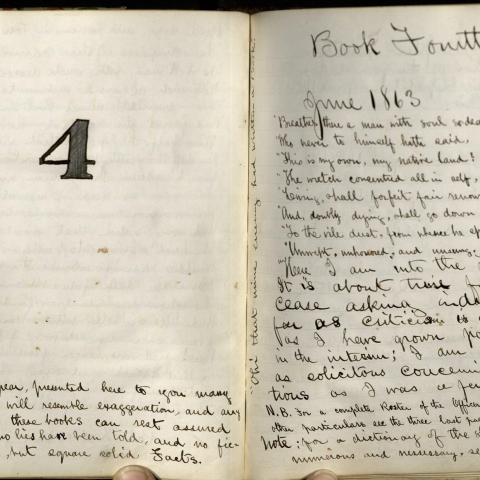 4
year, presented here to you many
will resemble exaggeration, and any
these books can rest assured
no lies have been told, and no fic-
, but square solid Facts.
"Oh! that mine enemy had written a Book."
Book Fourth
June 1863
"Breathes there a man with soul so dead
"Who never to himself hath said,
"This is my own, my native land!
"The wretch concentred all in self,
"Living, shall forfeit fair renown
"And, doubly dying, shall go down
"To the vile dust, from whence he sp
"Unwept, unhonored, and unsung."
Here I am into the
It is about time
cease asking ind
for as criticism is
as I have grown
in the interim; I am
as solicitous concerni
tions as I was a
N.B. For a complete Roster of the Officers
other particulars see the three last pa
Note: for a dictionary of the
numerous and necessary, se